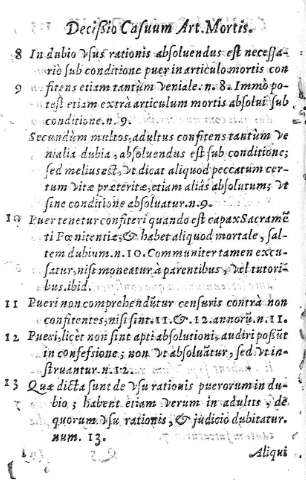 Decißio Casuum Art. Mortis.
8 In dubio vsus rationis absoluendus est necessa-
rio sub conditione puer in articulo mortis con
9 fitens etiam tantùm veniale. n. 8. Immò po-
test etiam extrà articulum mortis absolui sub
conditione. n. 9.
Secundùm multos, adultus confitens tantùm ve
nialia dubia, absoluendus est sub conditione;
sed melius est, vt dicat aliquod peccatum cer-
tum vitæ præteritæ, etiam aliàs absolutum; vt
sine conditione absoluatur. n. 9.
10 Puer tenetur confiteri quando est capax Sacramē
ti Pœnitentiæ, & habet aliquod mortale, sal-
tem dubium. n. 10. Communiter tamen excu-
satur, nisi moneatur à parentibus, vel tutori-
bus. ibid.
11 Pueri non comprehendūtur censuris contrà non
confitentes, nisi sint. 11. & 12. annorū. n. 11.
12 Pueri, licèt non sint apti absolutioni, audiri possūt
in confessione; non vt absoluātur, sed vt in-
struantur. n. 12.
13 Quæ dicta sunt de vsu rationis puerorum in du-
bio; habent etiam verum in adultis, de
quorum vsu rationis, & judicio dubitatur.
num. 13.
Aliqui